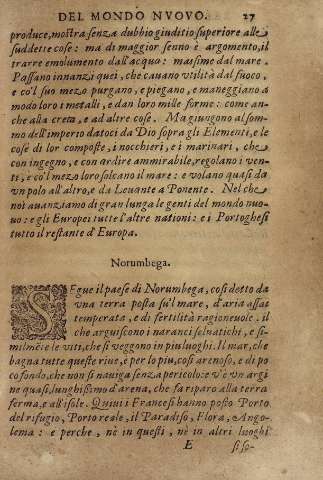 DEL MONDO NVOVO. 27
produce, mostra senza dubbio giuditio superiore alle
suddette cose: ma di maggior senno è argomento, il
trarre emolumento dall'acquo: massime dal mare.
Passano innanzi quei, che cauano vtilità dal fuoco,
e co'l suo mezo purgano, e piegano, e maneggiano a
modo loro i metalli, e dan loro mille forme: come an-
che alla creta, e ad altre cose. Ma giungono al som-
mo dell'imperio datoci da Dio sopra gli Elementi, e le
cose di lor composte, i nocchieri, e i marinari, che
con ingegno, e con ardire ammirabile, regolano i ven-
ti, e co'l mezo loro solcano il mare: e volano quasi da
vn polo all'altro, e da Leuante a Ponente. Nel che
noi auanziamo di gran lunga le genti del mondo nuo-
uo: e gli Europei tutte l'altre nationi: e i Portoghesi
tutto il restante d'Europa.
Norumbega.
SEgue il paese di Norumbega, così detto da
vna terra posta su'l mare, d'aria assai
temperata, e di fertilità ragioneuole. il
che arguiscono i naranci seluatichi, e si-
milmente le viti, che si veggono in piu luoghi. Il mar, che
bagna tutte queste riue, è per lo piu, così arenoso, e di po
co fondo, che non si nauiga senza pericolo: v'è vn argi
ne quasi, lunghissimo d'arena, che fa riparo alla terra
ferma, e all'isole. Quiui i Francesi hanno posto Porto
del rifugio, Porto reale, il Paradiso, Flora, Ango-
lema: e perche, nè in questi, nè in altri luoghi
E si so-